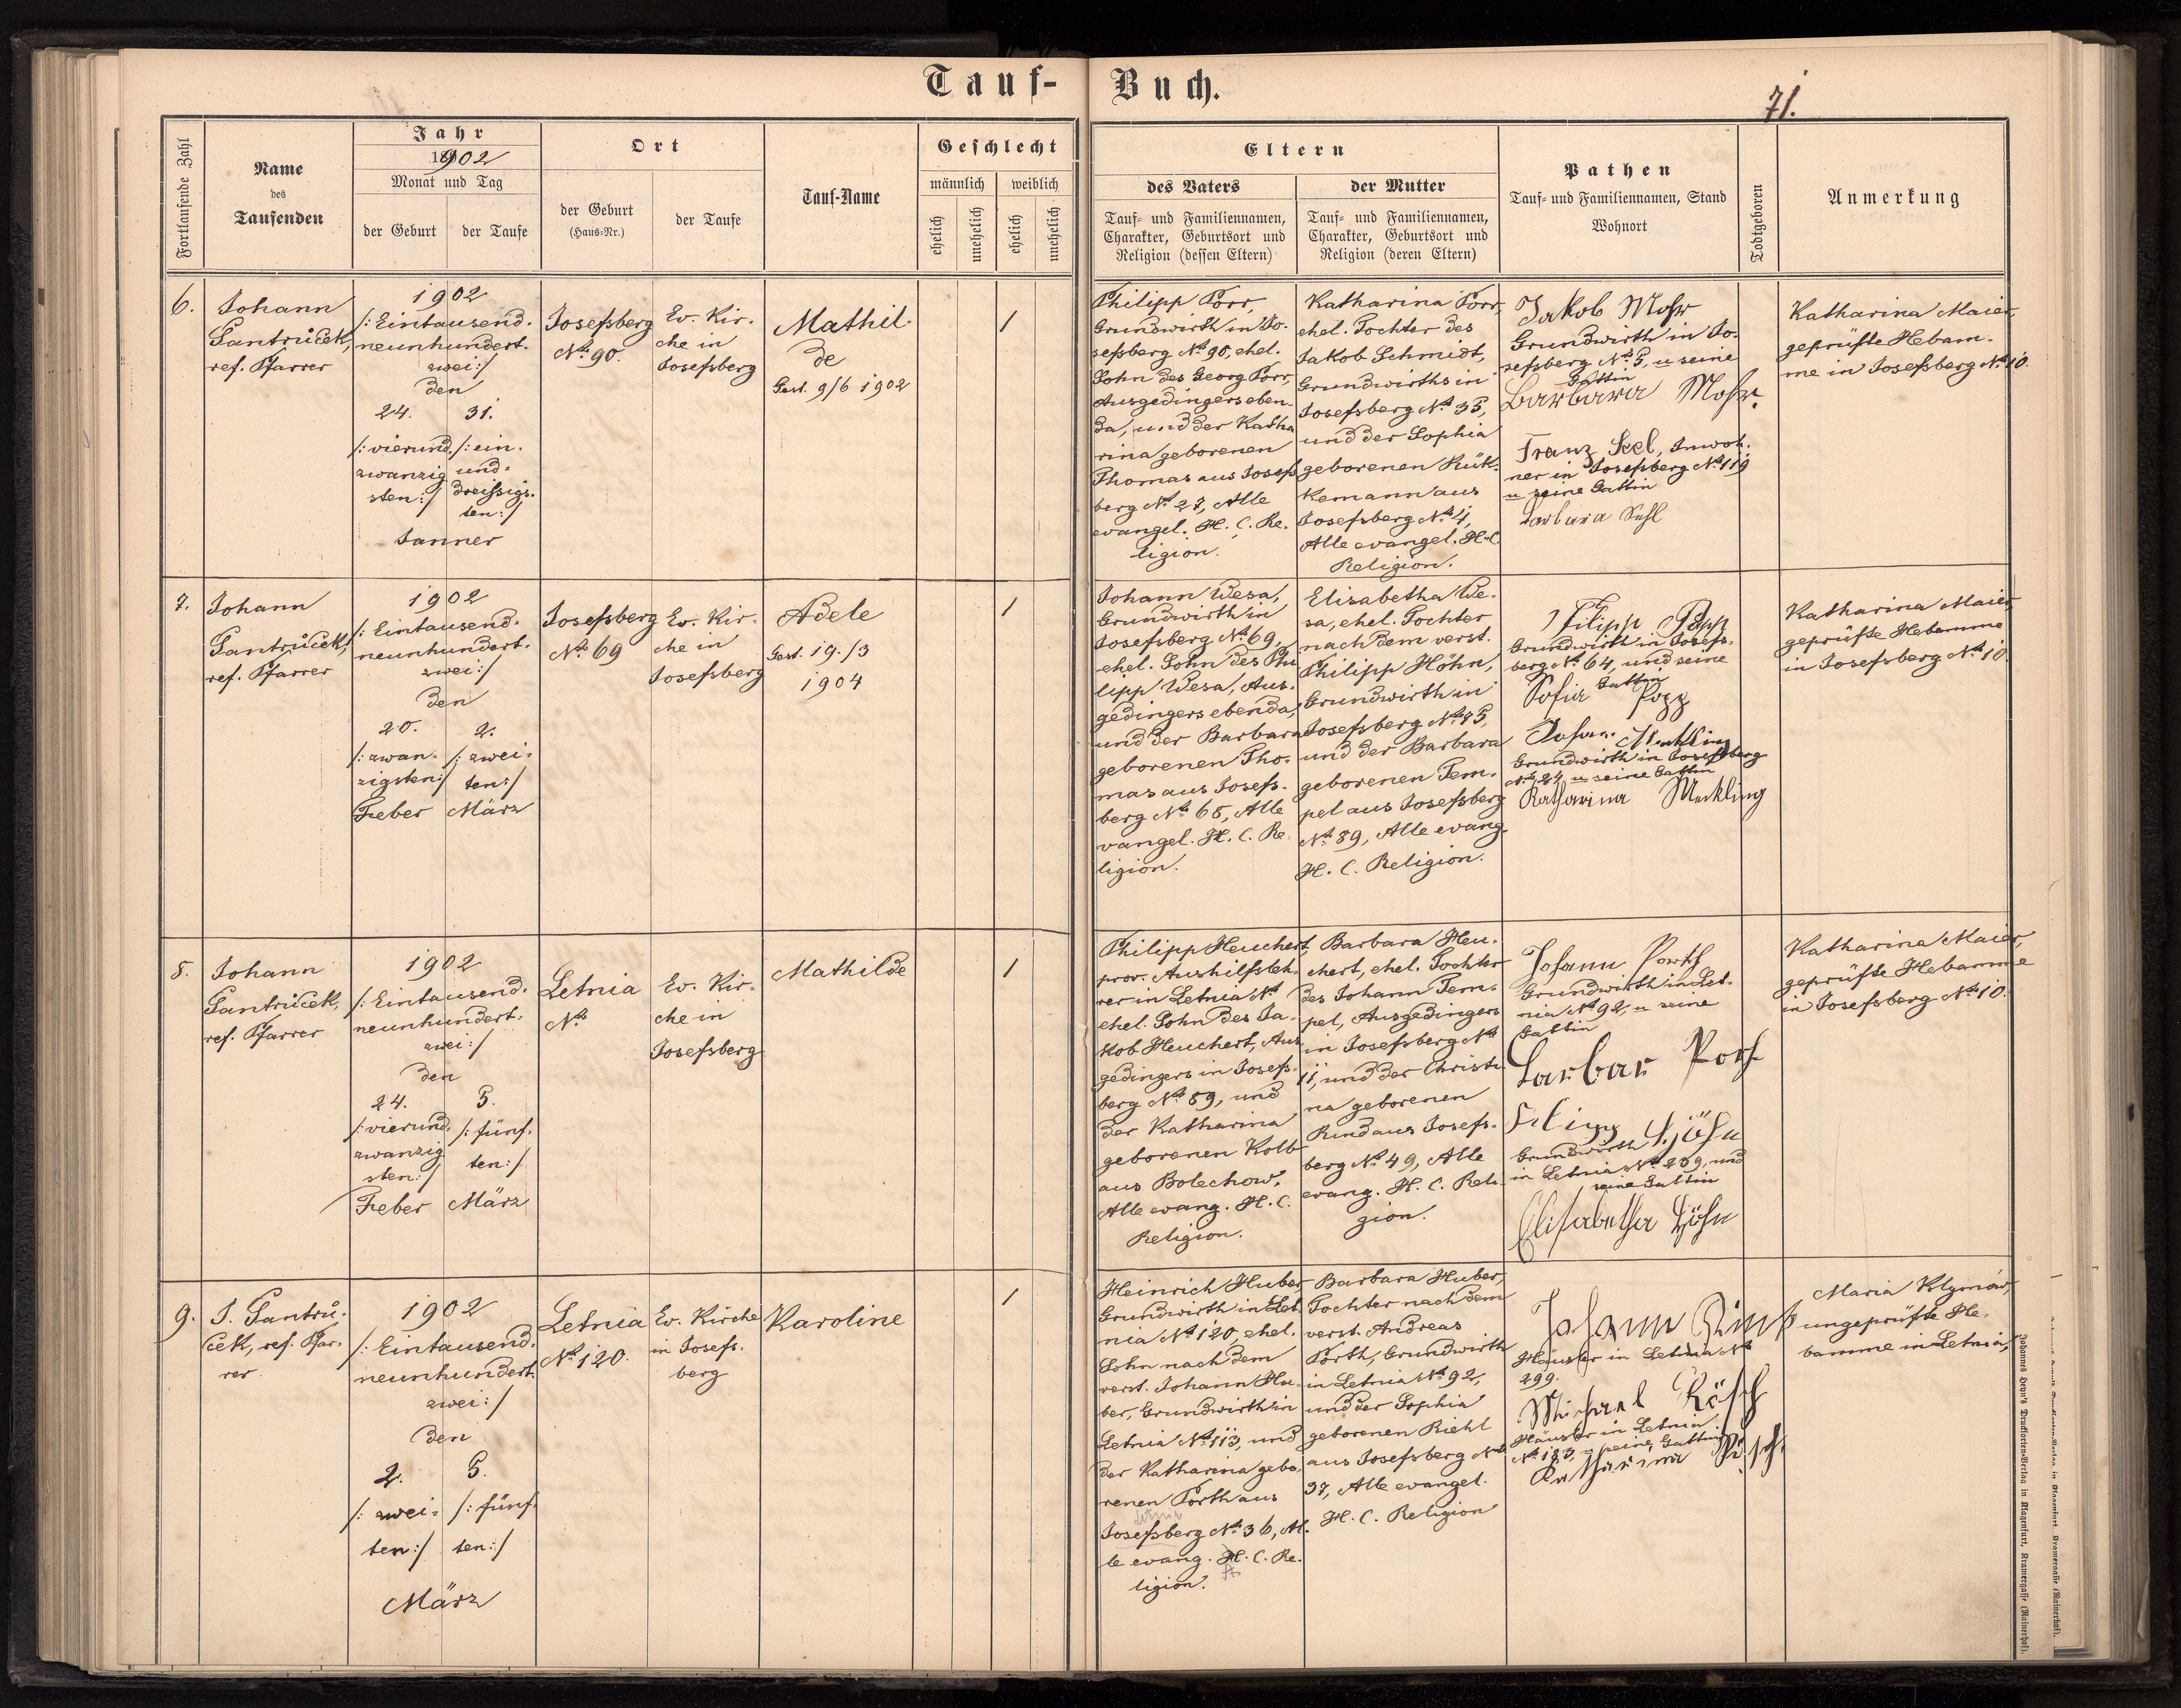 Tauf-Buch.
71.
Fortlaufende Zahl
Name
des
Taufenden
Jahr
1902
Monat und Tag
der Geburt
der Taufe
Ort
der Geburt
(Haus-Nr.)
der Taufe
Tauf-Name
Geschlecht
männlich
weiblich
ehelich
unehelich
ehelich
unehelich
Eltern
des Vaters
Tauf- und Familiennamen,
Charakter, Geburtsort und
Religion (dessen Eltern)
der Mutter
Tauf- und Familiennamen,
Charakter, Geburtsort und
Religion (deren Eltern)
Pathen
Tauf- und Familiennamen, Stand
Wohnort
Todtgeboren
Anmerkung
6.
Johann
Jantrůček,
ref. Pfarrer
1902
/: Eintausend-
neunhundert-
zwei :/
den
24.
/: vierund-
zwanzig
sten :/
31.
/: ein-
und-
dreissigs-
ten :/
Janner
Josefsberg
No 90.
Ev. Kir-
che in
Josefsberg
Mathil-
de
Gest. 9/6 1902
1
Philipp Porr,
Grundwirth in Jo-
sefsberg No 90, ehel.
Sohn des Georg Porr,
Ausgedingers eben-
da, und der Katha
rina geborenen
Thomas aus Josefs
berg No 27, Alle
evangel. H. C. Re-
ligion.
Katharina Porr,
ehel. Tochter des
Jakob Schmidt,
Grundwirths in
Josefsberg No 35,
und der Sophia
geborenen Rük-
kemann aus
Josefsberg No 4,
Alle evangel. H. C.
Religion.
Jakob Mohr
Grundwirth in Jo-
sefsberg No 5, u seine
Gattin
Barbara Mohr.
Franz Sel, Inwoh-
ner in Josefsberg No 119
u seine Gattin
Barbara Sehl
Katharina Maier,
geprüfte Hebam-
me in Josefsberg No 10.
7.
Johann
Jantrůček,
ref. Pfarrer
1902
/: Eintausend-
neunhundert-
zwei :/
den
20.
/: zwan-
zigsten :/
Feber
2.
/: zwei-
ten :/
März
Josefsberg
No 69
Ev. Kir-
che in
Josefsberg
Adele
Gest. 19./3
1904
1
Johann Wesa,
Grundwirth in
Josefsberg No 69,
ehel. Sohn des Phi
lipp Wesa, Aus-
gedingers ebenda,
und der Barbara
geborenen Tho-
mas aus Josefs-
berg No 65, Alle
vangel. H. C. Re-
ligion.
Elisabetha We-
sa, ehel. Tochter
nach dem verst.
Philipp Höhn,
Grundwirth in
Josefsberg No 85,
und der Barbara
geborenen Tem-
pel aus Josefsberg
No 89, Alle evang.
H. C. Religion.
Filipp Popp
Grundwirth in Josefs-
berg No 64, und seine
Gattin
Sofia Popp
Johan Meckling
Grundwirth in Josefsberg
No 24 u seine Gattin
Katharina Meckling
Katharina Maier,
geprüfte Hebamme
in Josefsberg No 10.
8.
Johann
Jantrůček,
ref. Pfarrer
1902
/: Eintausend-
neunhundert-
zwei :/
den
24.
/: vierund-
zwanzig
sten :/
Feber
5.
/: fünf-
ten :/
März
Letnia
No
Ev. Kir-
che in
Josefsberg
Mathilde
1
Philipp Heuchert,
prov. Aushilfsleh-
rer in Letnia No
ehel. Sohn des Ja-
kob Heuchert, Aus
gedingers in Josefs-
berg No 59, und
der Katharina
geborenen Kolb
aus Bolechow,
Alle evang. H. C.
Religion.
Barbara Heu-
chert, ehel. Tochter
des Johann Tem-
pel, Ausgedingers
in Josefsberg No
11, und der Christi-
na geborenen
Rind aus Josefs-
berg No 49, Alle
evang. H. C. Reli-
gion.
Johann Porth
Grundwirth in Let-
nia No 92, u seine
Gattin
Barbar Porth
Filipp Höhn
Grundwirth
in Letnia No 239, und
seine Gattin
Elisabetha Höhn
Katharina Maier,
geprüfte Hebamme
in Josefsberg No 10.
9.
J. Jantrů-
ček, ref. Pfar-
rer
1902
/: Eintausend-
neunhundert
zwei :/
den
2.
/: zwei-
ten :/
5.
/: fünf-
ten :/
März
Letnia
No 120.
Ev. Kirche
in Josefs-
berg
Karoline
1
Heinrich Huber,
Grundwirth in Let-
nia No 120, ehel.
Sohn nach dem
verst. Johann Hu-
ber, Grundwirth in
Letnia No 113, und
der Katharina gebo-
renen Porth aus
Josefsberg No 36, Al-
le evang. H. C. Re-
ligion.
Barbara Huber,
Tochter nach dem
verst. Andreas
Porth, Grundwirth
in Letnia No 92,
und der Sophia
geborenen Riehl
aus Josefsberg No
37, Alle evangel.
H. C. Religion
Johann
Häusler in Letnia No
299.
Michael Rösch
Häusler in Letnia
No 183, u seine Gattin
Katharina Rösch
Maria Klymów,
ungeprüfte He-
bamme in Letnia,
Johannes Heyn's Drucksorten-Verlag in Klagenfurt, Kramergasse (Rainerhof).